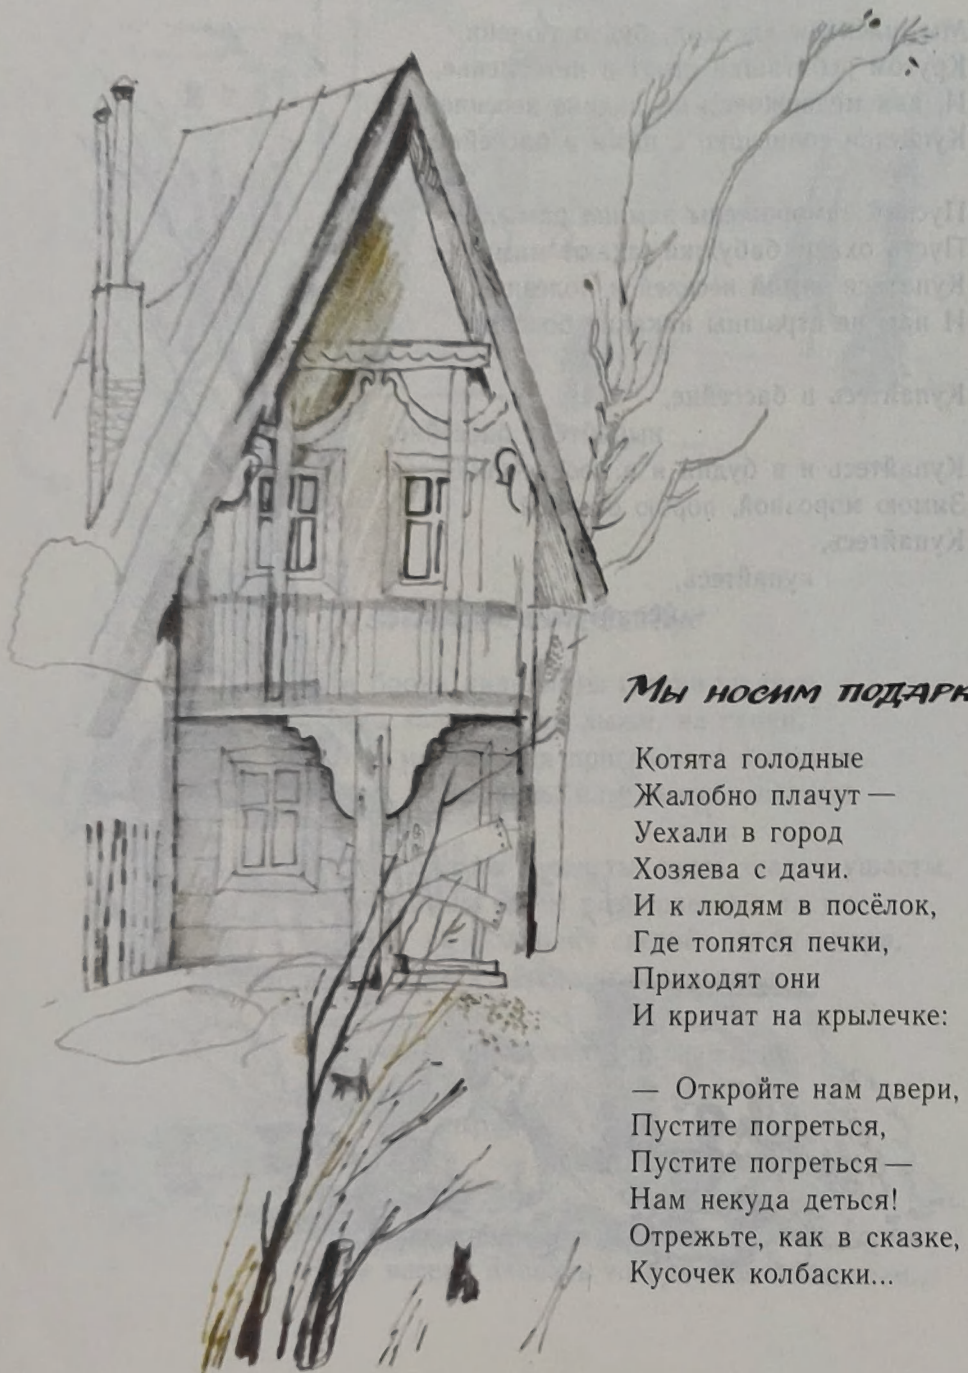 Мы носим подарк
Котята голодные
Жалобно плачут —
Уехали в город
Хозяева с дачи.
И к людям в посёлок,
Где топятся печки,
Приходят они
И кричат на крылечке:
— Откройте нам двери,
Пустите погреться,
Пустите погреться —
Нам некуда деться!
Отрежьте, как в сказке,
Кусочек колбаски...